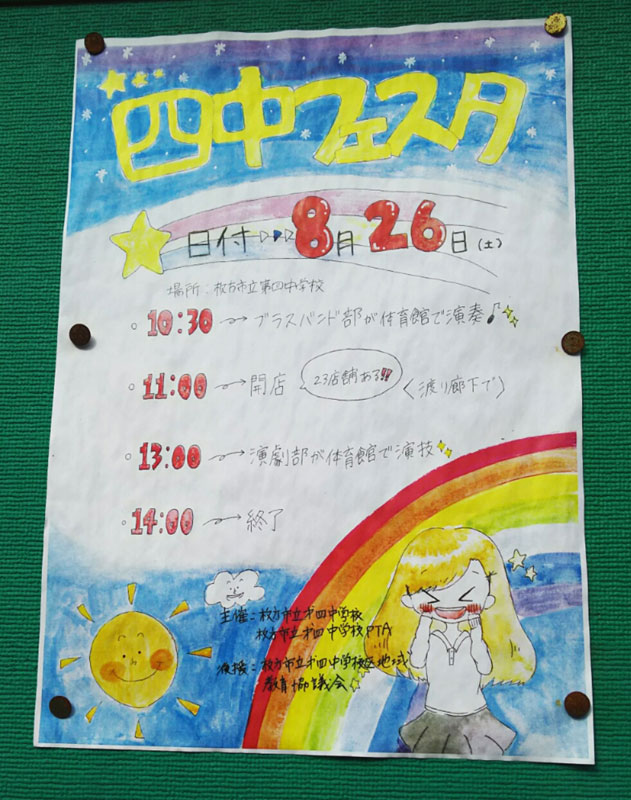 四中フェスタ
日付▷▶▷8月26日(土)
場所:枚方市立第四中学校
。10:30 → ブラスバンド部が体育館で演奏♪
。11:00 → 開店 23店舗ある!!! 〈渡り廊下で〉
。13:00 → 演劇部が体育館で演技
。14:00 → 終了
主催:枚方市立才四中学校
枚方市立才四中学校PTA
後援:枚方市立才四中学校区地域
教育協議会